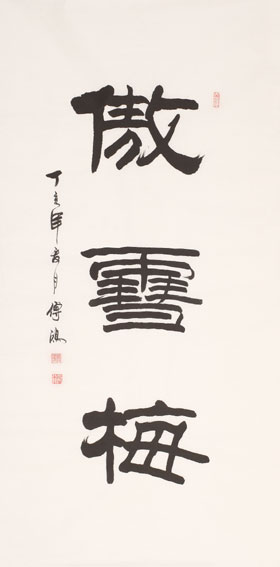 傲雪梅
丁亥年春月傅鴻